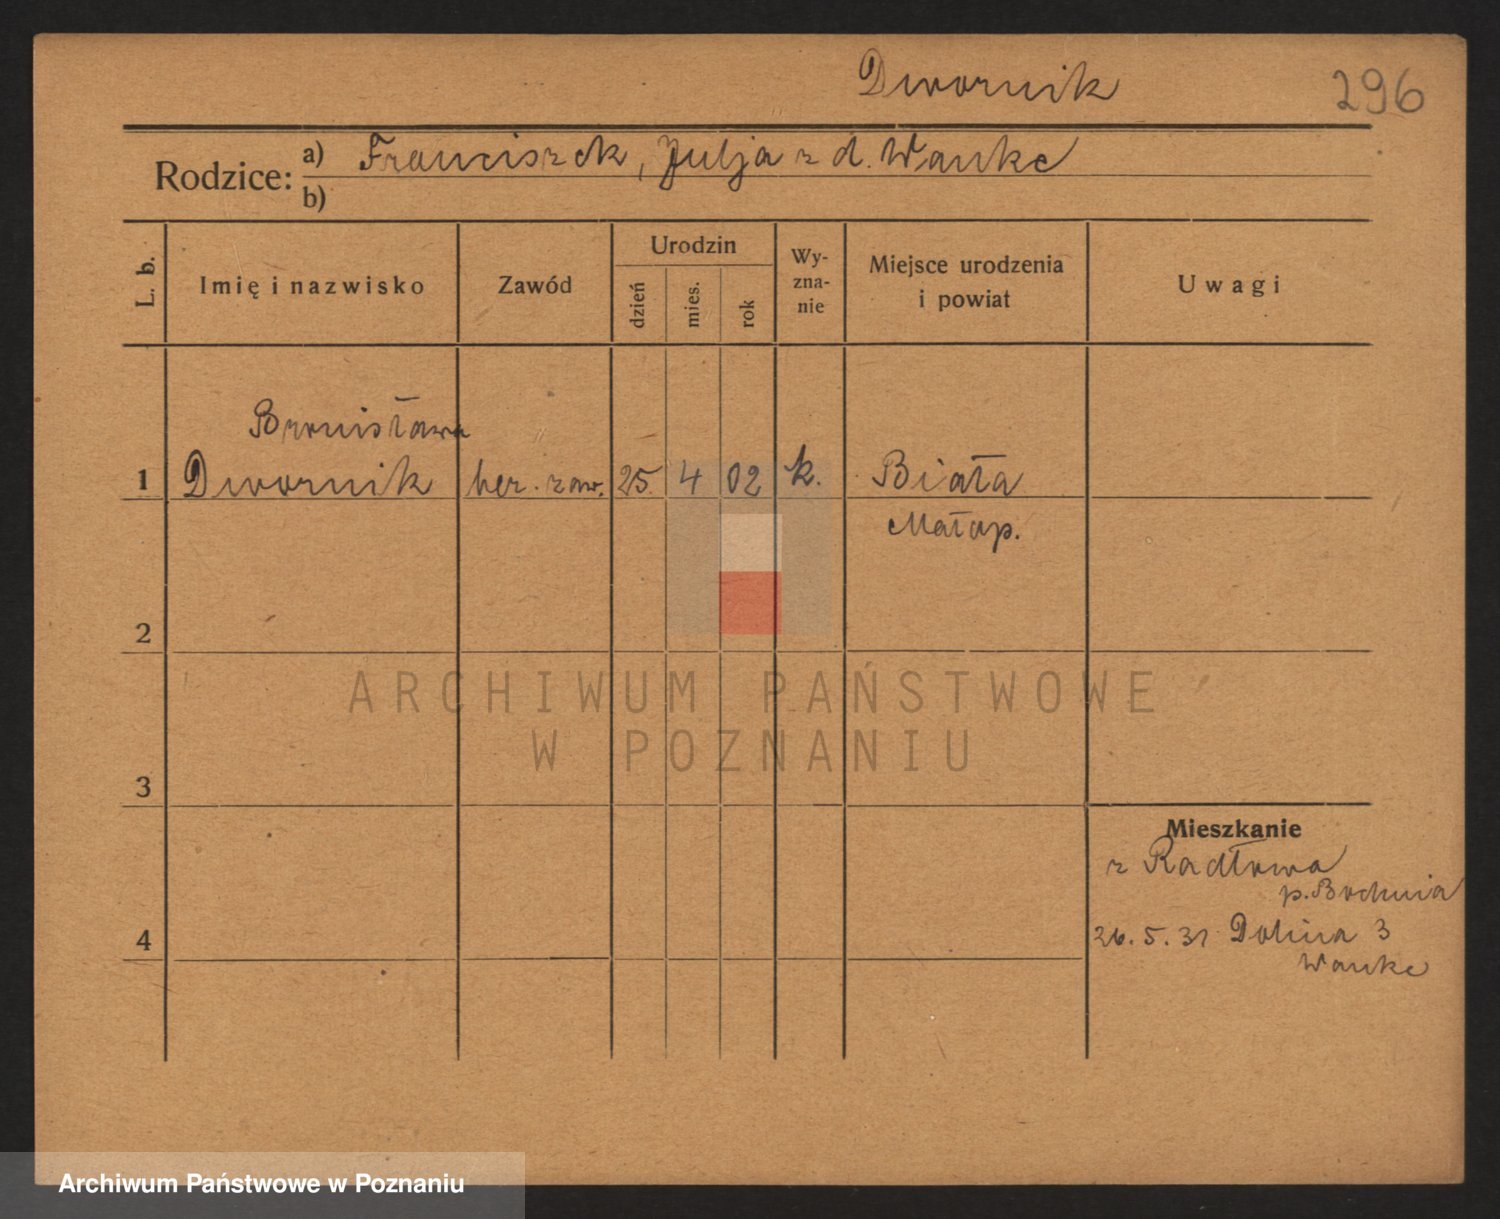 Dwornik
296
Rodzice:
a) Franciszek, Julja z d. Wanke
b)
L. b.
Imię i nazwisko
Zawód
Urodzin
dzień
mies.
rok
Wy-
zna-
nie
Miejsce urodzenia
i powiat
Uwagi
Bronisława
1 Dwornik bez. zaw. 25 4 02 k. Biała
Małop.
2
ARCHIWUM PAŃSTWOWE
W POZNANIU
3
Mieszkanie
z Radłowa
p. Bochnia
4
26. 5. 31 Dolina 3
Wanke
Archiwum Państwowe w Poznaniu